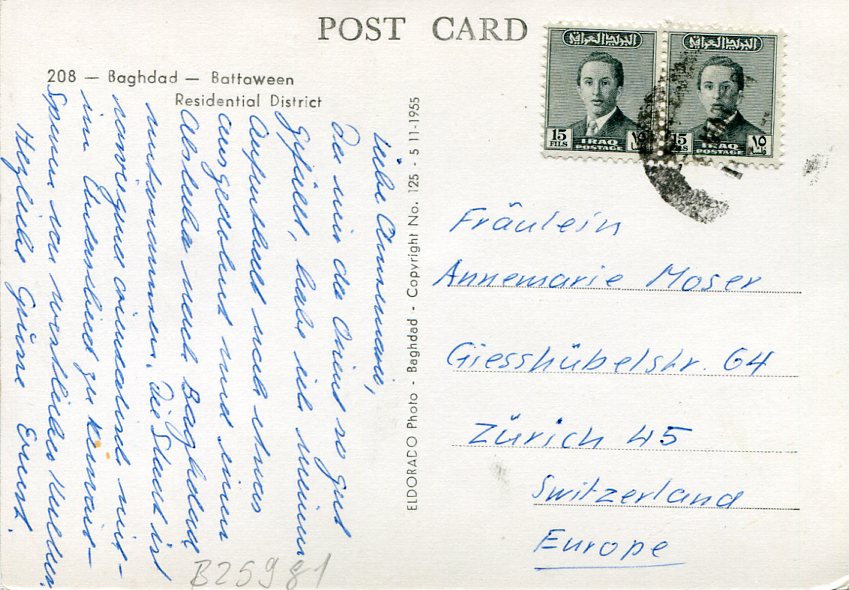 POST CARD
208 — Baghdad — Battaween
Residential District
Liebe Annemarie,
Da mir der Orient so gut
gefällt, habe ich meinen
Aufenthalt noch etwas
ausgedehnt und einen
Abstecher nach Bagdad
unternommen. Die Stadt ist
vorwiegend orientalisch mit
im
Spuren von westlicher Kultur.
Herzliche Grüsse Ernst.
ELDORADO Photo - Baghdad - Copyright No. 125 - 5 11-1955
البريد العراقي
15
FILS
١٥
IRAQ
POSTAGE
البريد العراقي
15
FILS
١٥
IRAQ
POSTAGE
Fräulein
Annemarie Moser
Giesshübelstr. 64
Zürich 45
Switzerland
Europe
B25981